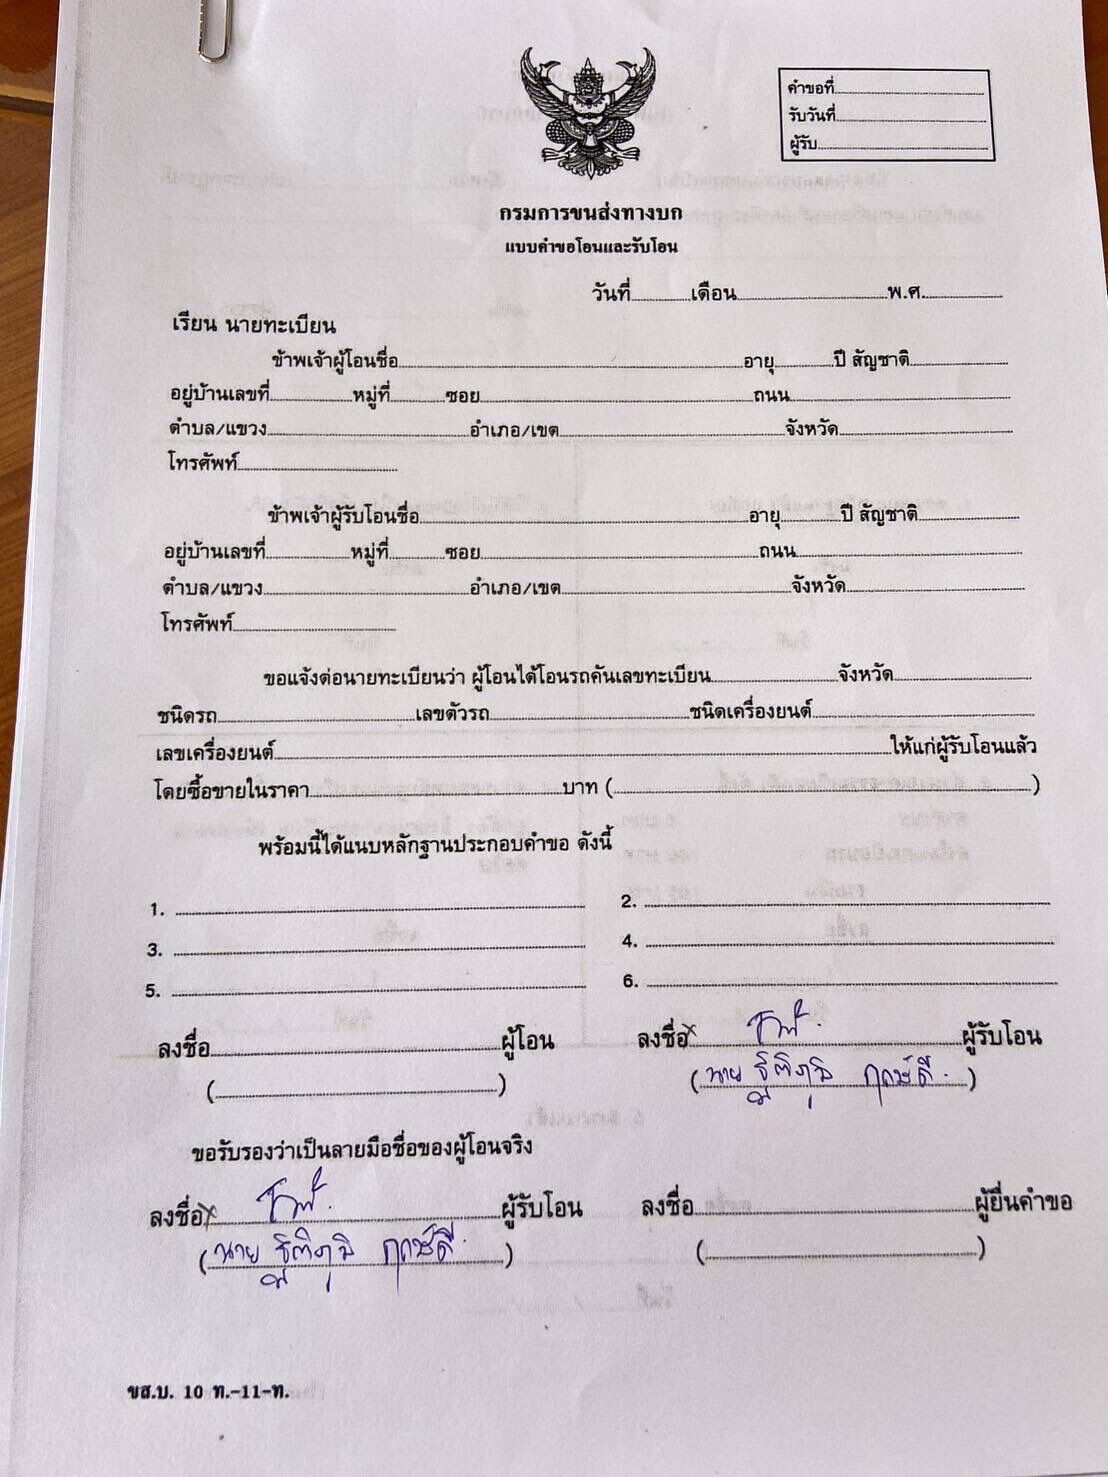 คำขอที่
รับวันที่
ผู้รับ
กรมการขนส่งทางบก
แบบคำขอโอนและรับโอน
วันที่ เดือน พ.ศ.
เรียน นายทะเบียน
ข้าพเจ้าผู้โอนชื่อ อายุ ปี สัญชาติ
อยู่บ้านเลขที่ หมู่ที่ ซอย ถนน
ตำบล/แขวง อำเภอ/เขต จังหวัด
โทรศัพท์
ข้าพเจ้าผู้รับโอนชื่อ อายุ ปี สัญชาติ
อยู่บ้านเลขที่ หมู่ที่ ซอย ถนน
ตำบล/แขวง อำเภอ/เขต จังหวัด
โทรศัพท์
ขอแจ้งต่อนายทะเบียนว่า ผู้โอนได้โอนรถคันเลขทะเบียน จังหวัด
ชนิดรถ เลขตัวรถ ชนิดเครื่องยนต์
เลขเครื่องยนต์ ให้แก่ผู้รับโอนแล้ว
โดยซื้อขายในราคา บาท ( )
พร้อมนี้ได้แนบหลักฐานประกอบคำขอ ดังนี้
1. 2.
3. 4.
5. 6.
ลงชื่อ ผู้โอน ลงชื่อ ผู้รับโอน
( ) (นาย ฐิติภูมิ ฤกษ์ดี)
ขอรับรองว่าเป็นลายมือชื่อของผู้โอนจริง
ลงชื่อ ผู้รับโอน ลงชื่อ ผู้ยื่นคำขอ
(นาย ฐิติภูมิ ฤกษ์ดี) ( )
ขส.บ. 10 ท.-11-ท.